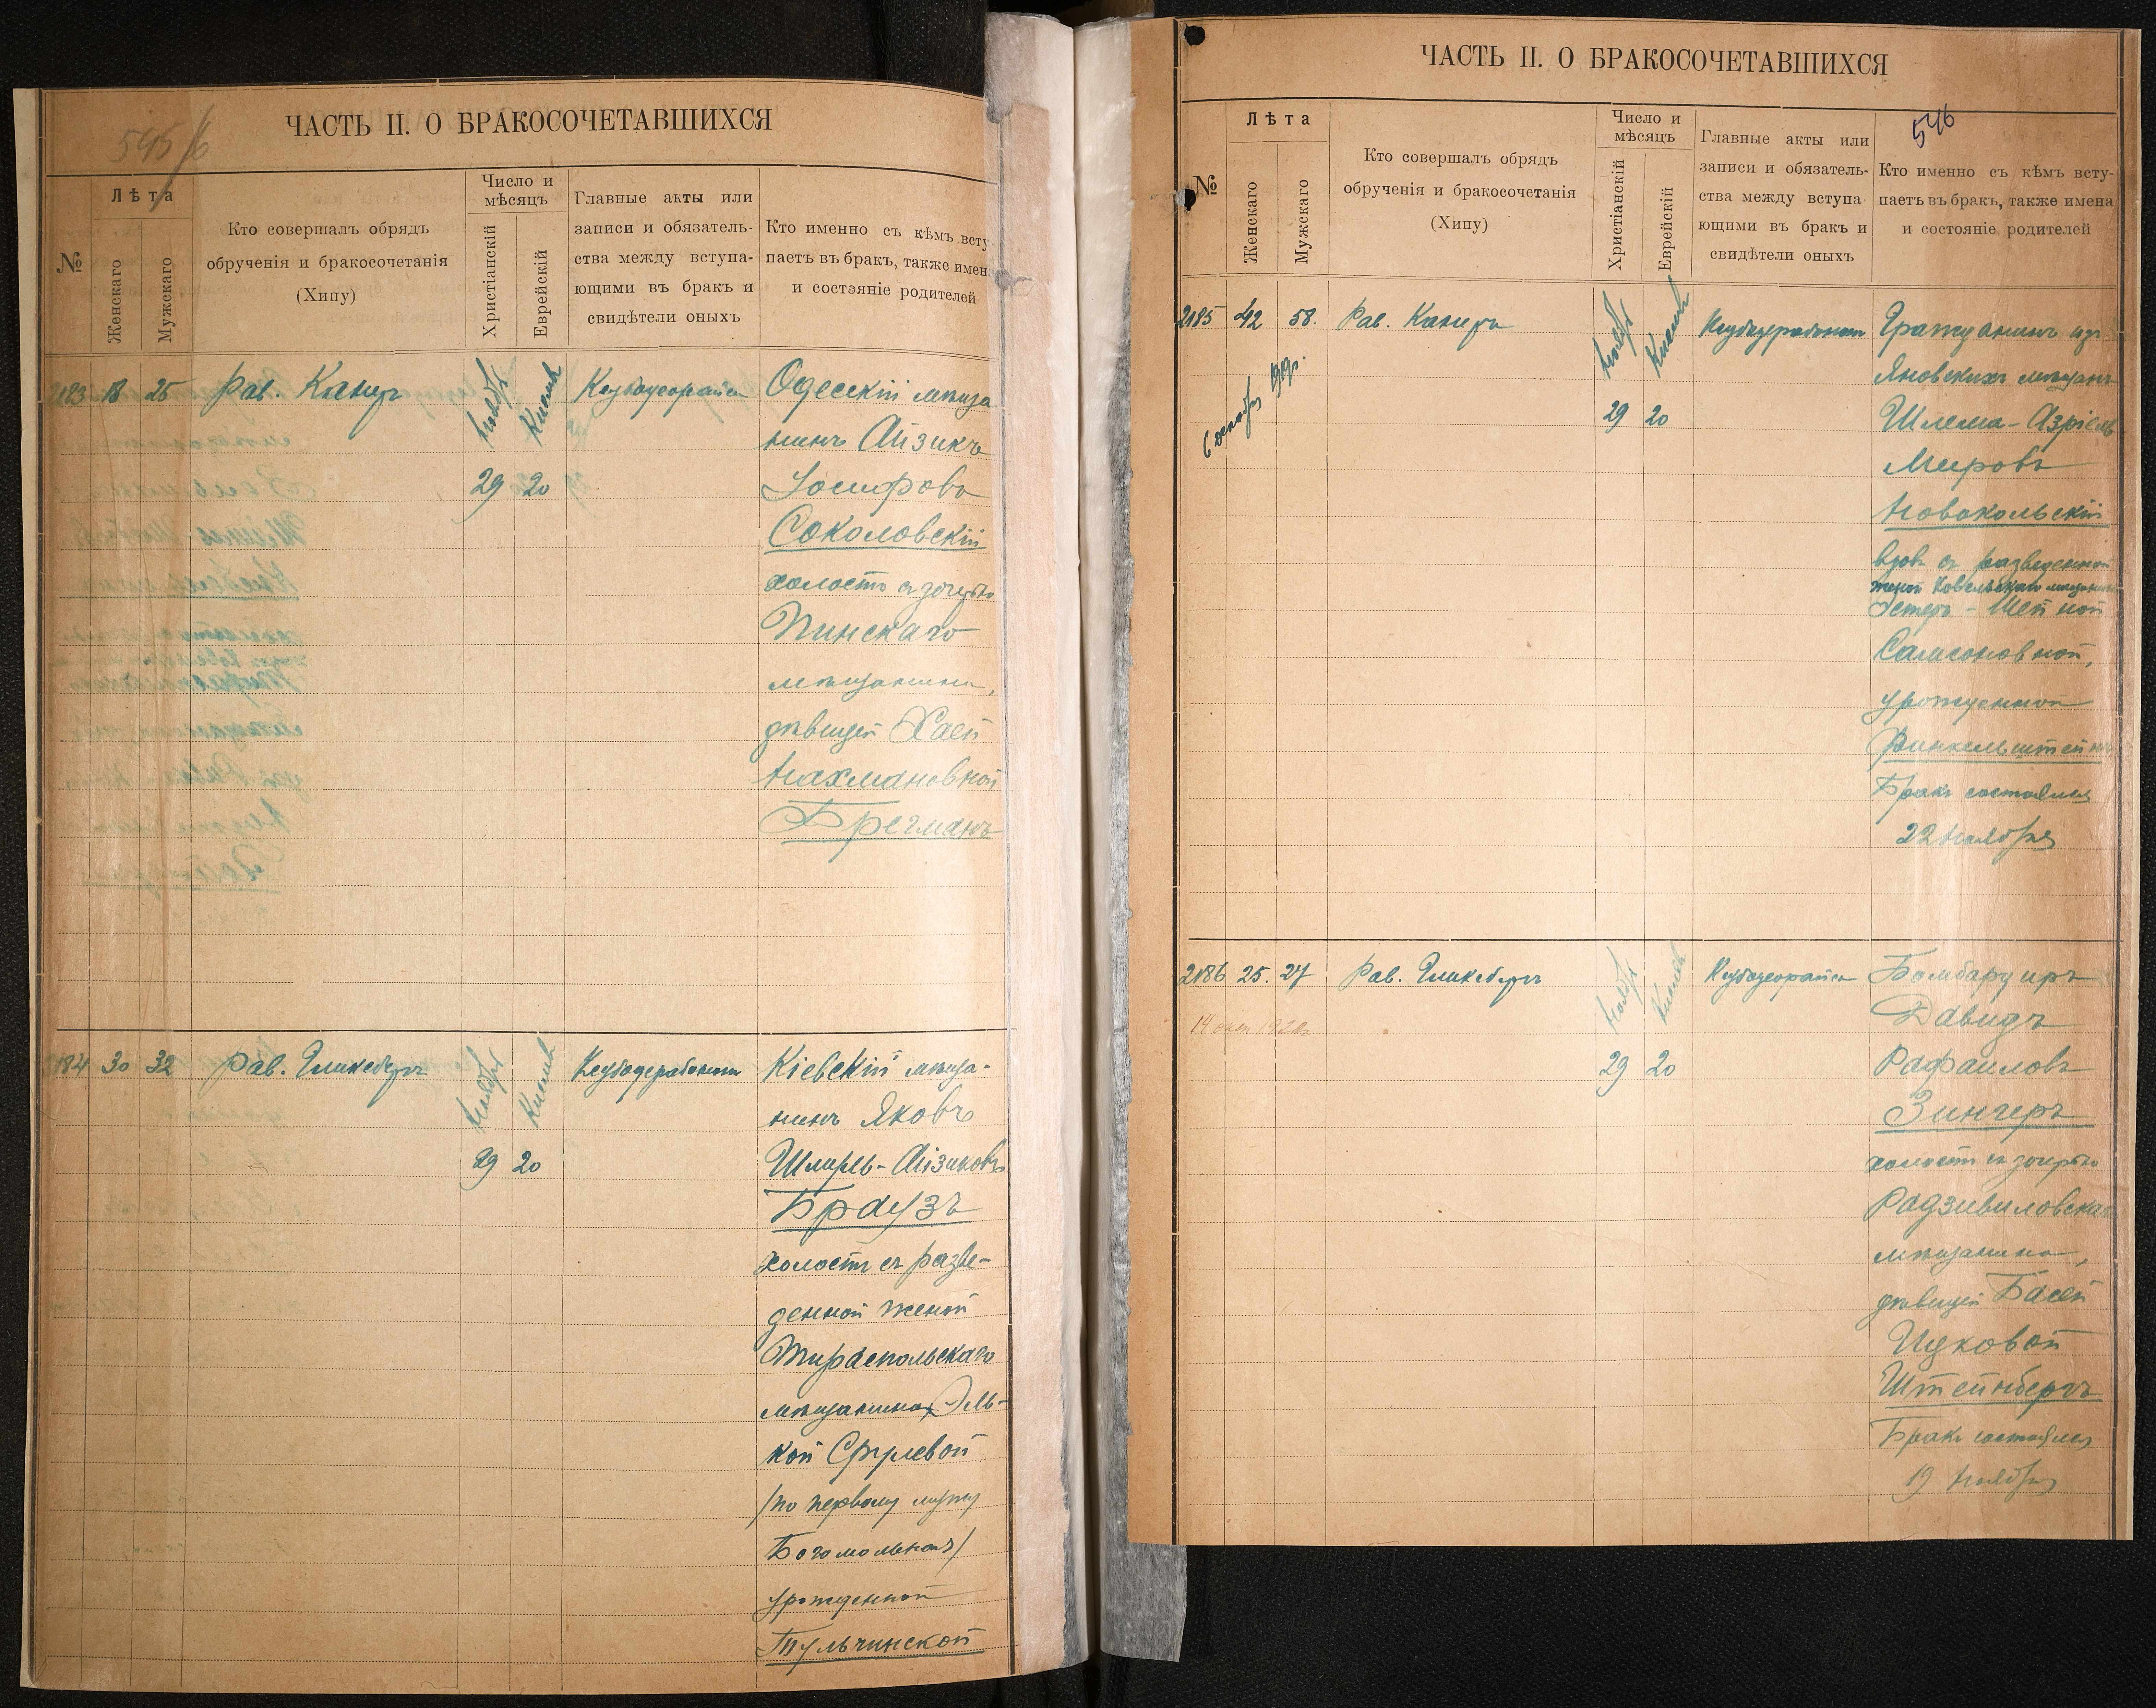 545/6
ЧАСТЬ II. О БРАКОСОЧЕТАВШИХСЯ
№
Лѣта
Женскаго
Мужскаго
Кто совершалъ обрядъ
обрученія и бракосочетанія
(Хипу)
Число и
мѣсяцъ
Христіанскій
Еврейскій
Главные акты или
записи и обязатель-
ства между вступа-
ющими въ бракъ и
свидѣтели оныхъ
Кто именно съ кѣмъ всту-
паетъ въ бракъ, также имен
и состэяніе родителей
2183 18 25 Рав. Канеръ Ноябрь Кислев
29 20
Одесскій мѣща
нинъ Айзикъ
Іосифовъ
Соколовскій
холостъ съ дочерью
Пинскаго
мѣщанина,
дѣвицей Хаей
Нахмановной
Брегманъ
184 30 32 Рав. Гликсбергъ Ноябрь Кислев
29 20
Кіевскій мѣща-
нинъ Яковъ
Шмирль-Айзиковъ
Браузъ
холостъ съ разве-
денной женой
Тираспольскаго
мѣщанина Эль-
кой Срулевой
/по первому мужу
Богомольная/
урожденной
Тульчинской
ЧАСТЬ II. О БРАКОСОЧЕТАВШИХСЯ
546
№
Лѣта
Женскаго
Мужскаго
Кто совершалъ обрядъ
обрученія и бракосочетанія
(Хипу)
Число и
мѣсяцъ
Христіанскій
Еврейскій
Главные акты или
записи и обязатель-
ства между вступа-
ющими въ бракъ и
свидѣтели оныхъ
Кто именно съ кѣмъ всту-
паетъ въ бракъ, также имена
и состояніе родителей
2185 42 58. Рав. Канеръ Ноябрь Кислев
6 декабря 1919г.
29 20
Гражданинъ изъ
Яновскихъ мѣщанъ
Шлема-Азріель
Мировъ
Новокольскій
вдов съ разведенной
женой Ковельскаго мѣщанина
Эстеръ-Шейной
Самсоновной,
урожденной
Финкельштейнъ
Бракъ состоялся
22 Ноября
2186 25. 27 Рав. Гликсбергъ Ноябрь Кислев
29 20
Бомбардиръ
Давидъ
Рафаиловъ
Зингеръ
холостъ съ дочерью
Радзивиловскаго
мѣщанина,
дѣвицей Басей
Ицковой
Штейнбергъ
Бракъ состоялся
19 Ноября